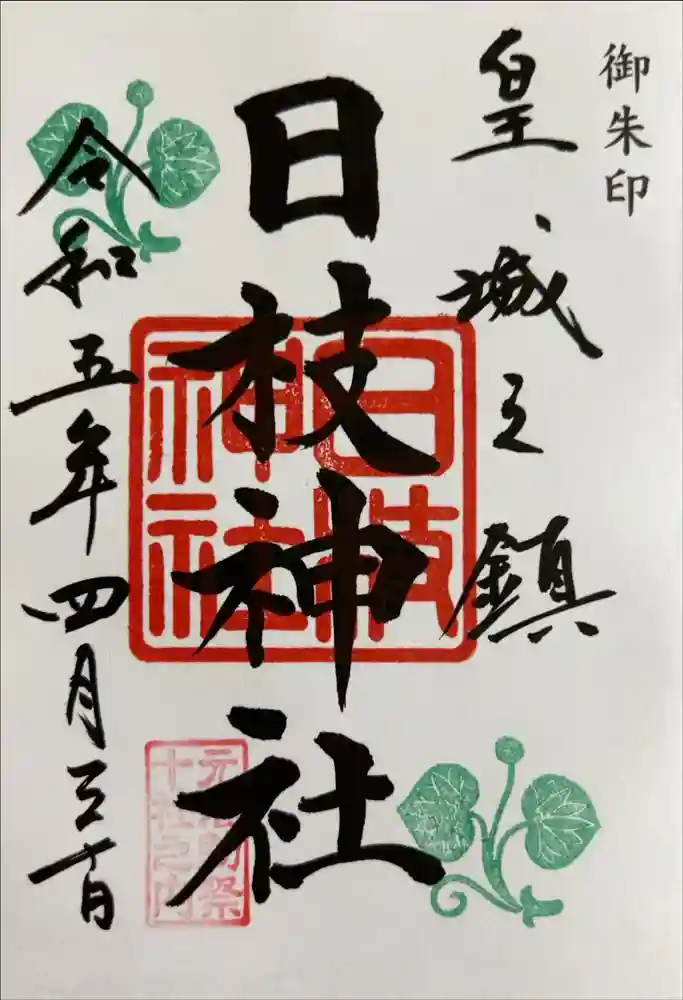 御朱印
皇城之鎮
日枝神社
日枝
神社
元准勅祭
十社之内
令和五年四月三十日